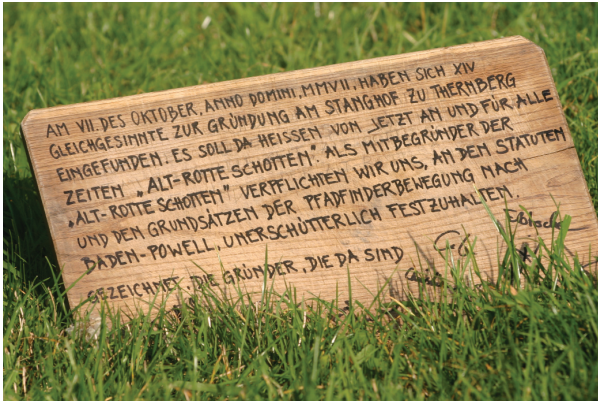 AM VII. DES OKTOBER, ANNO DOMINI MMVII, HABEN SICH XIV
GLEICHGESINNTE ZUR GRÜNDUNG AM STANGHOF ZU THERNBERG
EINGEFUNDEN. ES SOLL DA HEISSEN VON JETZT AN UND FÜR ALLE
ZEITEN „ALT-ROTTE SCHOTTEN". ALS MITBEGRÜNDER DER
„ALT-ROTTE SCHOTTEN" VERPFLICHTEN WIR UNS, AN DEM STATUTEN
UND DEN GRUNDSÄTZEN DER PFADFINDERBEWEGUNG NACH
BADEN-POWELL, UNERSCHÜTTERLICH FESTZUHALTEN.
GEZEICHNET, DIE GRÜNDER, DIE DA SIND